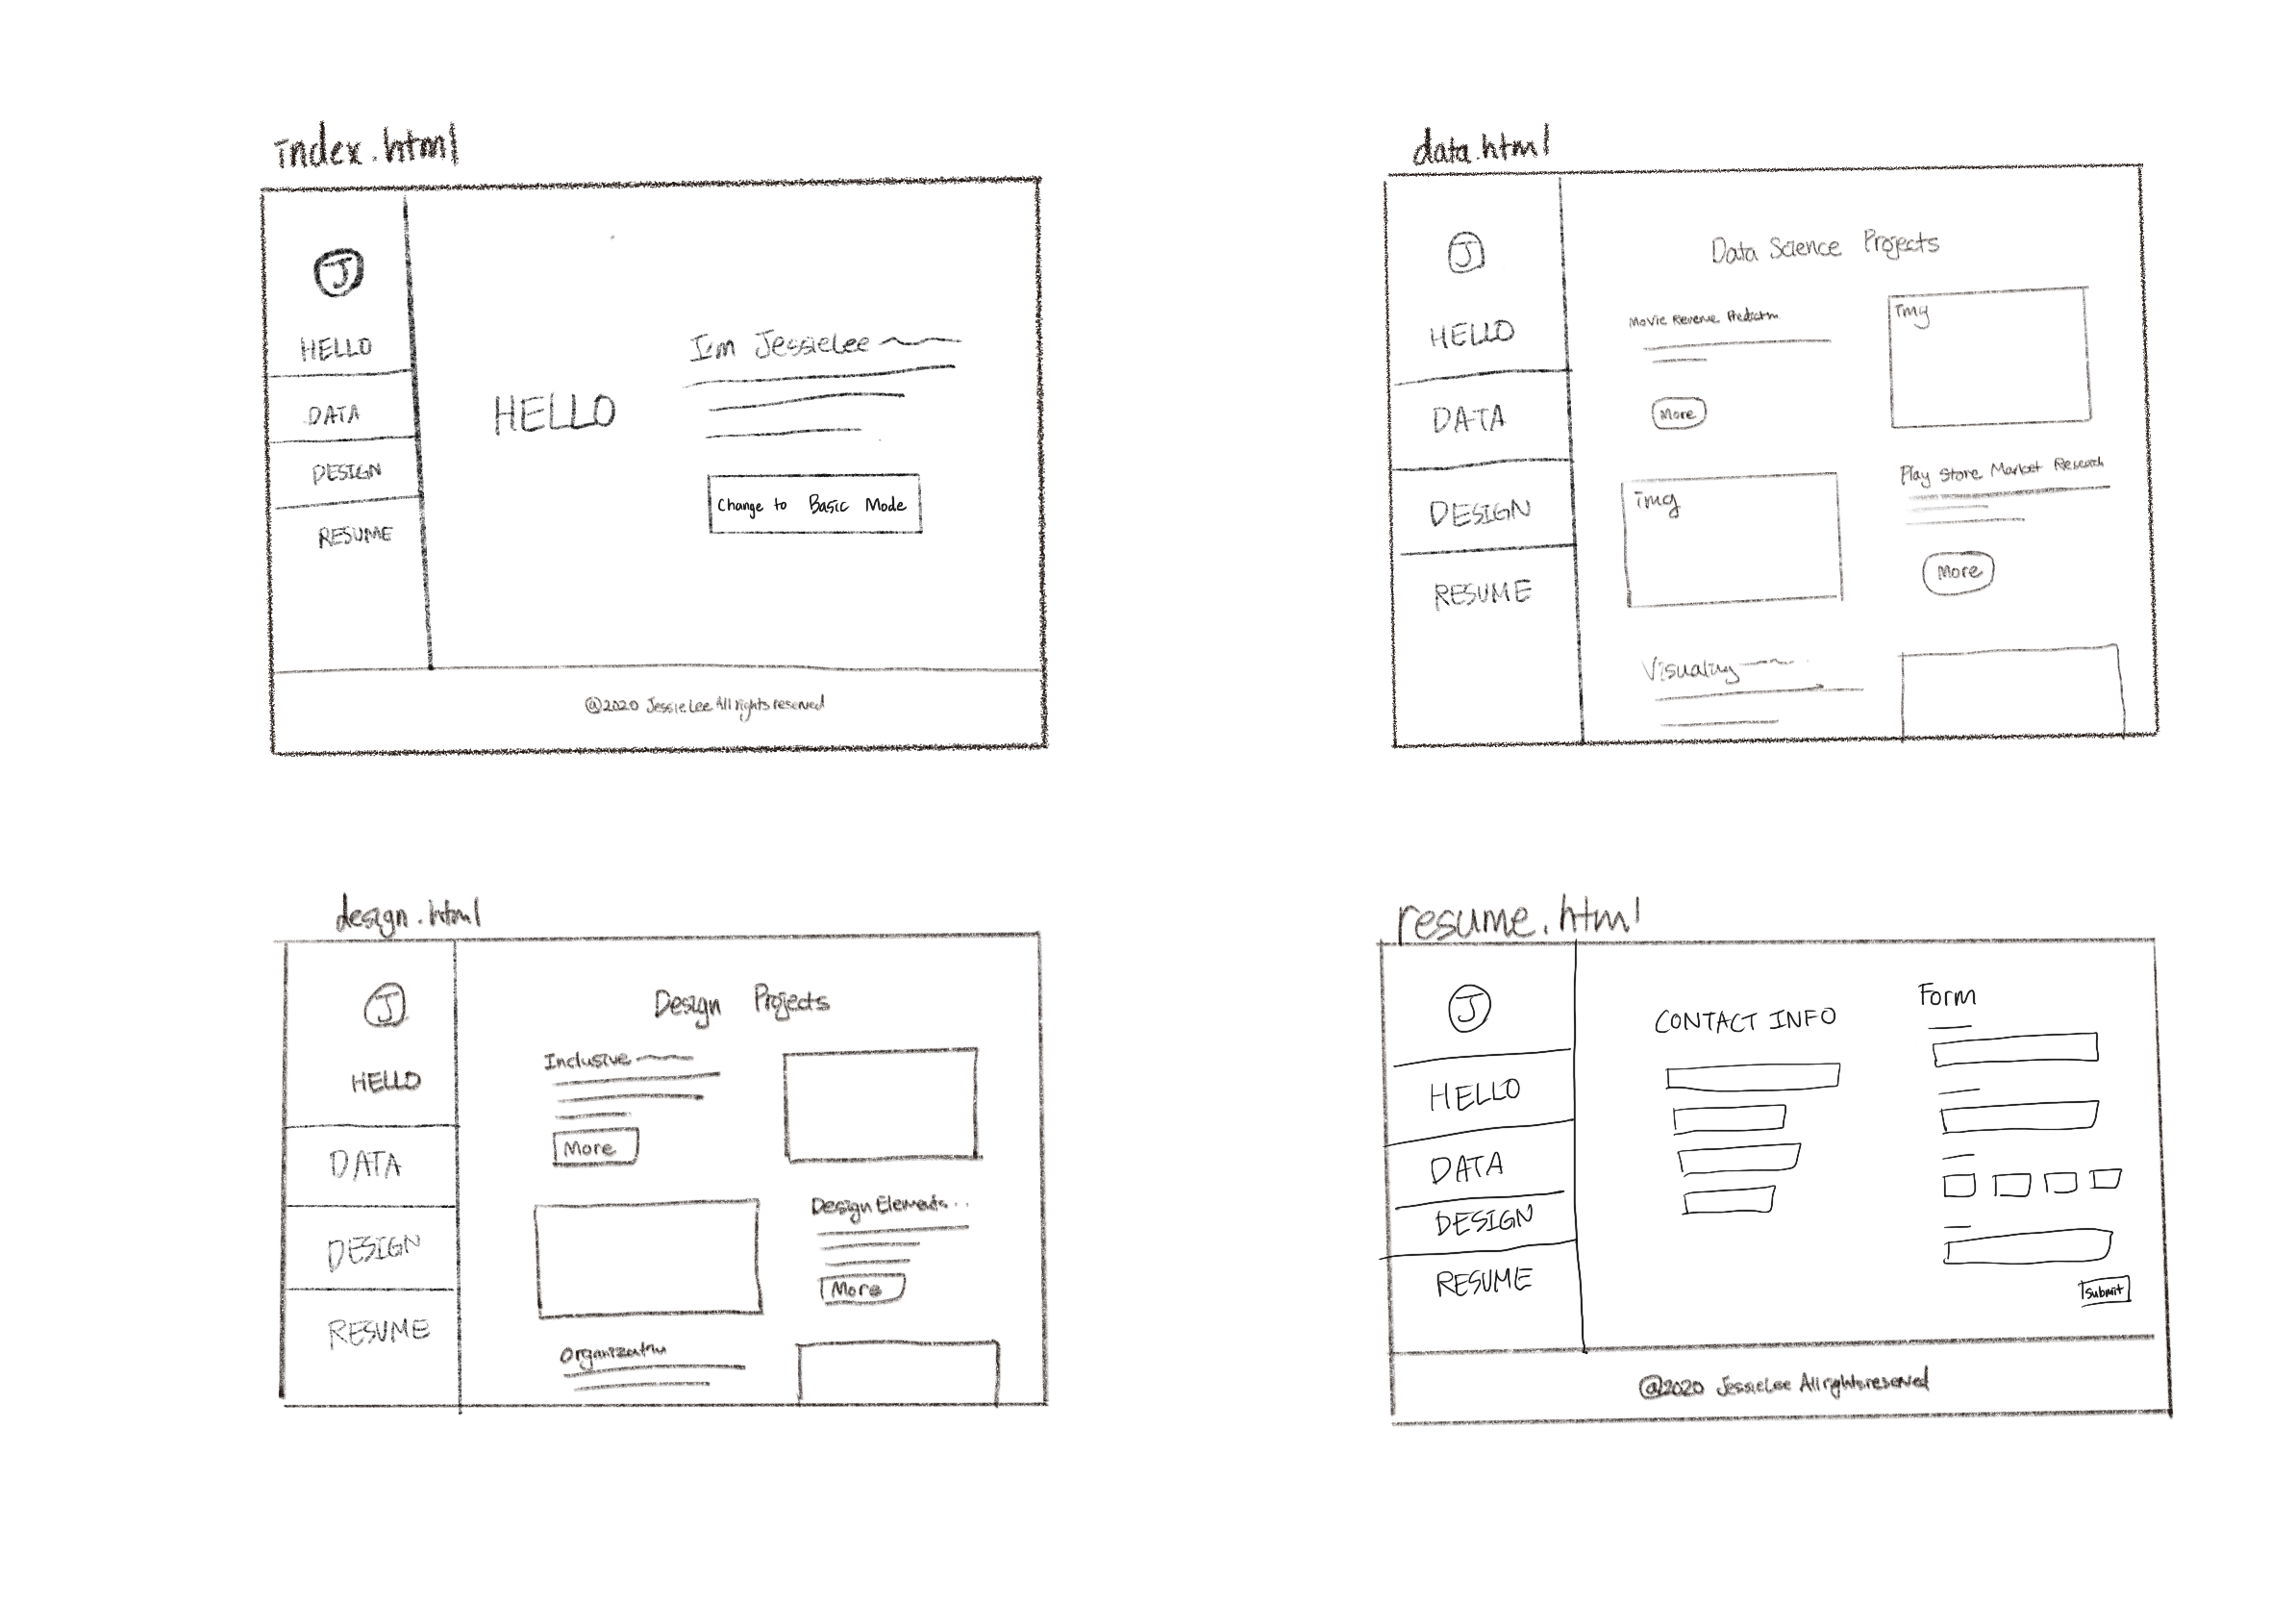 index.html
J
HELLO
DATA
DESIGN
RESUME
HELLO
I'm JessieLee
Change to Basic Mode
@2020 JessieLee All rights reserved
data.html
J
HELLO
DATA
DESIGN
RESUME
Data Science Projects
Movie Revenue Prediction
More
img
img
Play Store Market Research
More
design.html
J
HELLO
DATA
DESIGN
RESUME
Design Projects
Inclusive
More
Design Elements...
More
Organization
resume.html
J
HELLO
DATA
DESIGN
RESUME
CONTACT INFO
Form
Submit
@2020 JessieLee All rights reserved